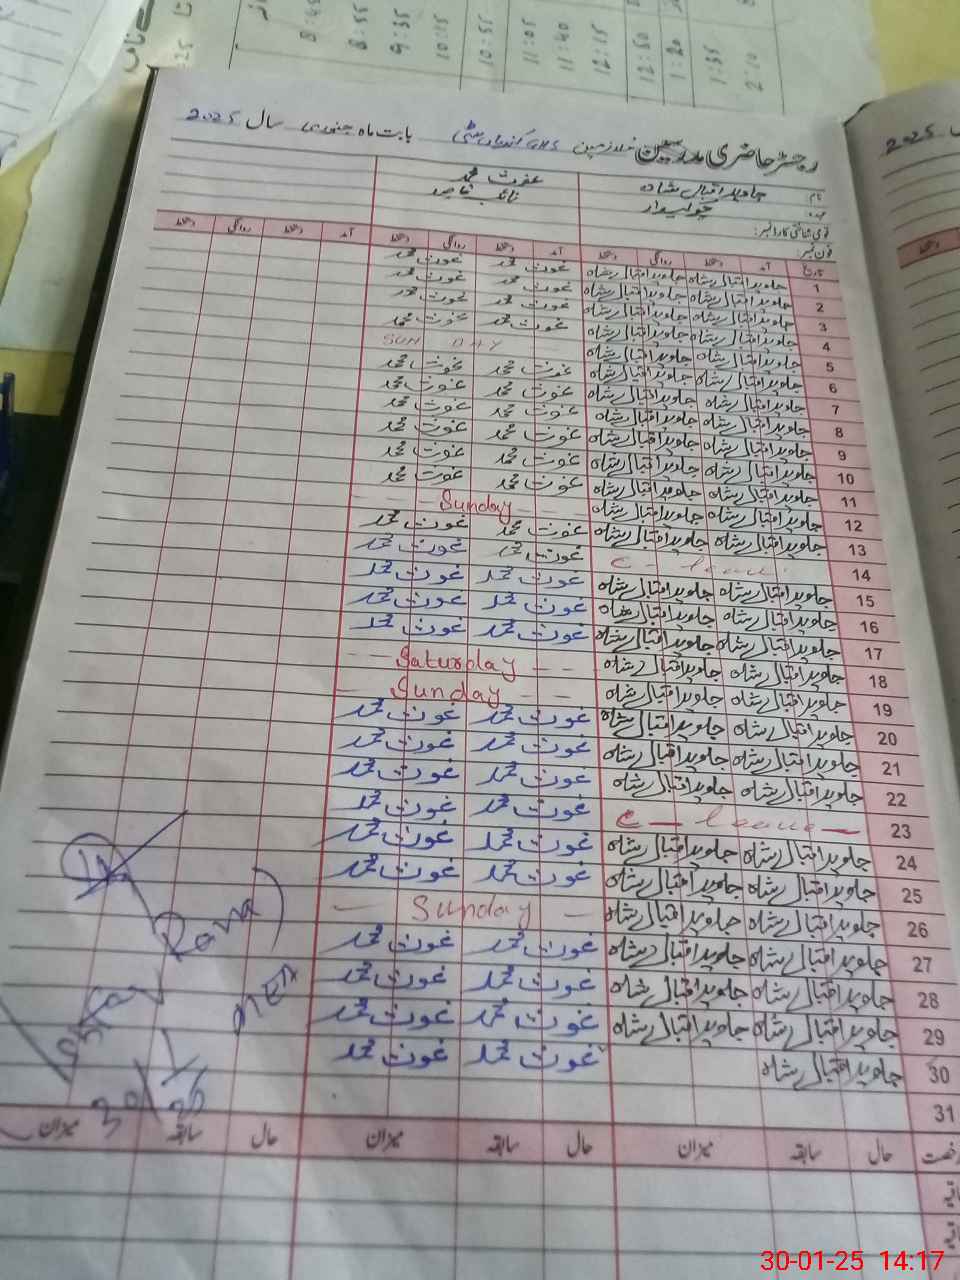 8:55
9:35
10:15
10:55
11:05
11:40
12:15
12:50
1:20
1:35
2:10
رجسٹر حاضری مدرسین ملازمین GHS بابت ماہ جنوری سال 2025
نام: جاوید اقبال شاہ غوث محمد
عہدہ چوکیدار نائب قاصد
قومی شناختی کارڈ نمبر:
فون نمبر:
تاریخ آمد دستخط روانگی دستخط آمد دستخط روانگی دستخط آمد دستخط روانگی دستخط
1 جاوید اقبال شاہ جاوید اقبال شاہ غوث محمد غوث محمد
2 جاوید اقبال شاہ جاوید اقبال شاہ غوث محمد غوث محمد
3 جاوید اقبال شاہ جاوید اقبال شاہ غوث محمد غوث محمد
4 جاوید اقبال شاہ جاوید اقبال شاہ غوث محمد غوث محمد
5 جاوید اقبال شاہ جاوید اقبال شاہ SUN DAY
6 جاوید اقبال شاہ جاوید اقبال شاہ غوث محمد غوث محمد
7 جاوید اقبال شاہ جاوید اقبال شاہ غوث محمد غوث محمد
8 جاوید اقبال شاہ جاوید اقبال شاہ غوث محمد غوث محمد
9 جاوید اقبال شاہ جاوید اقبال شاہ غوث محمد غوث محمد
10 جاوید اقبال شاہ جاوید اقبال شاہ غوث محمد غوث محمد
11 جاوید اقبال شاہ جاوید اقبال شاہ غوث محمد غوث محمد
12 جاوید اقبال شاہ جاوید اقبال شاہ Sunday
13 جاوید اقبال شاہ جاوید اقبال شاہ غوث محمد غوث محمد
14 C - leave غوث محمد غوث محمد
15 جاوید اقبال شاہ جاوید اقبال شاہ غوث محمد غوث محمد
16 جاوید اقبال شاہ جاوید اقبال شاہ غوث محمد غوث محمد
17 جاوید اقبال شاہ جاوید اقبال شاہ غوث محمد غوث محمد
18 جاوید اقبال شاہ جاوید اقبال شاہ Saturday
19 جاوید اقبال شاہ جاوید اقبال شاہ Sunday
20 جاوید اقبال شاہ جاوید اقبال شاہ غوث محمد غوث محمد
21 جاوید اقبال شاہ جاوید اقبال شاہ غوث محمد غوث محمد
22 جاوید اقبال شاہ جاوید اقبال شاہ غوث محمد غوث محمد
23 C - leave - غوث محمد غوث محمد
24 جاوید اقبال شاہ جاوید اقبال شاہ غوث محمد غوث محمد
25 جاوید اقبال شاہ جاوید اقبال شاہ غوث محمد غوث محمد
26 جاوید اقبال شاہ جاوید اقبال شاہ Sunday
27 جاوید اقبال شاہ جاوید اقبال شاہ غوث محمد غوث محمد
28 جاوید اقبال شاہ جاوید اقبال شاہ غوث محمد غوث محمد
29 جاوید اقبال شاہ جاوید اقبال شاہ غوث محمد غوث محمد
30 جاوید اقبال شاہ غوث محمد غوث محمد
31
رخصت حال سابقہ میزان حال سابقہ میزان حال سابقہ میزان
Rana)
MEA
30/1/25
2025
30-01-25 14:17